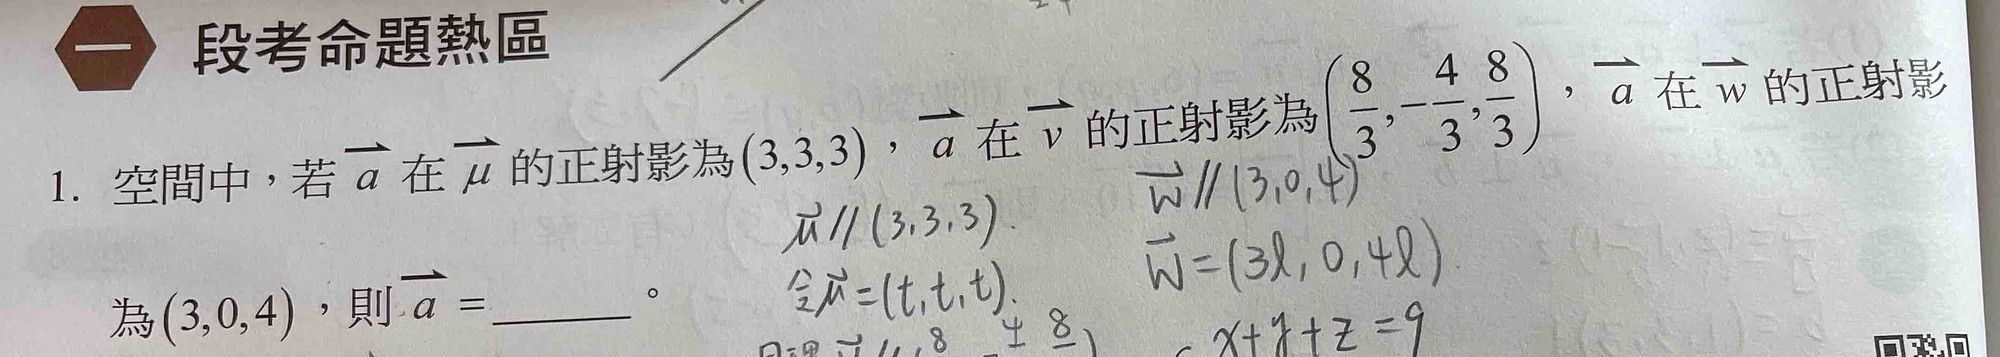 一 段考命題熱區
1. 空間中，若 $\overrightarrow{a}$ 在 $\overrightarrow{\mu}$ 的正射影為 (3,3,3)，$\overrightarrow{a}$ 在 $\overrightarrow{v}$ 的正射影為 $\left(\frac{8}{3},-\frac{4}{3},\frac{8}{3}\right)$，$\overrightarrow{a}$ 在 $\overrightarrow{w}$ 的正射影
為 (3,0,4)，則 $\overrightarrow{a}$ = ______。
$\vec{\mu}$ // (3,3,3).
令 $\vec{\mu}$ = (t,t,t).
$\vec{w}$ // (3,0,4)
$\vec{w}$ = (3l, 0, 4l).
x+y+z=9